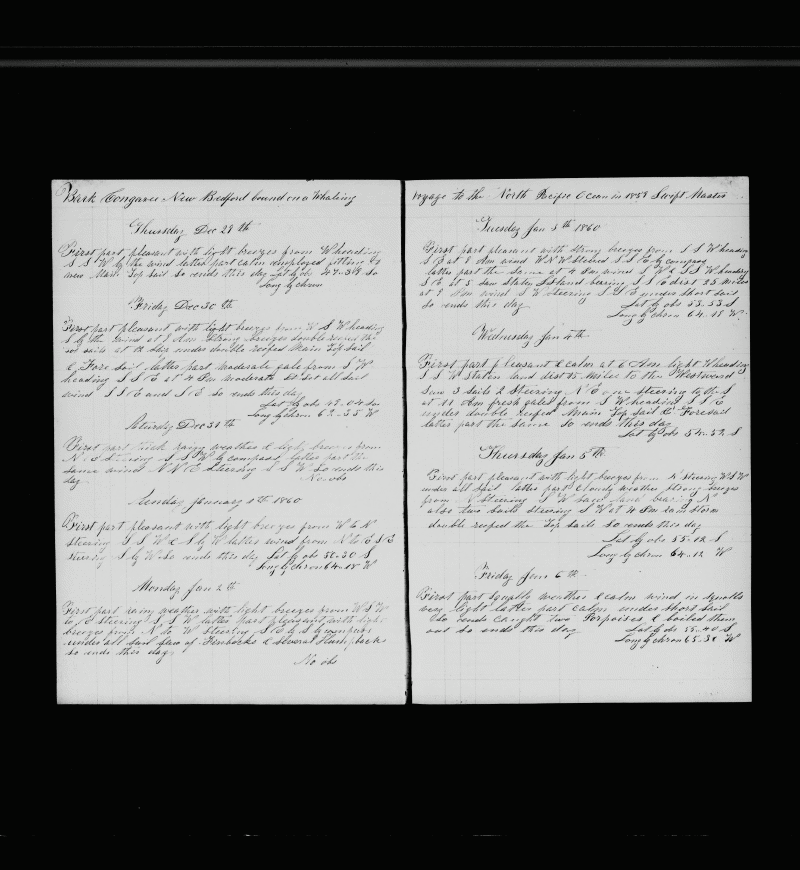 Bark Congaree New Bedford bound on a Whaling
Thursday Dec 29th
First part pleasant with light breezes from W heading
S S W by the wind latter part calm employed fitting
new Main Top sail So ends this day Lat by obs 47..39 So
Long by chron
Friday Dec 30th
First part pleasant with light breezes from W S W heading
S by the wind at 8 Am strong breezes double reefed the
top sails at under double reefed Main Top Sail
& Fore sail latter part moderate gale from S W
heading S S E at 4 Pm moderate set all sail
wind S S E and S E So ends this day
Lat by obs 49..04 So
Long by chron 62..35 W
Saturday Dec 31th
First part thick rainy weather & light breezes from
N steering S S W by compass latter part the
same wind N N E steering S S W So ends this
day No obs
Sunday January 1th 1860
First part pleasant with light breezes from W & N
steering S S W & S by W latter wind from N E & E
steering S by W So ends this day Lat by obs 50..30 S
Long by chron 64..18 W
Monday Jan 2th
First part rainy weather with light breezes from W S W
to steering S S W latter part pleasant with light
breezes from N to W steering S E by S by compass
under all sail saw of Finbacks & several Humpbacks
so ends this day
No obs
voyage to the North Pacific Ocean in 1859 Swift Master
Tuesday Jan 3th 1860
First part pleasant with strong breezes from S S W heading
S E at 8 Am wind W N W Steered S S E by compass
latter part the same at 4 Pm wind S W & S S W heading
S E at 5 saw Staten Island bearing S S E dist 25 miles
at 8 Pm wind S W steering S E under short sail
so ends this day Lat by obs 53..53 S
Long by chron 64..18 W
Wednesday Jan 4th
First part pleasant & calm at 6 Am light W heading
S S W Staten land dist 15 miles to the Westward
Saw 3 sails 2 Steering N E one steering to the S
at 11 Am fresh gales from S W heading S S E
under double reefed Main Top Sail & Foresail
latter part the same So ends this day
Lat by obs 54..52 S
Thursday Jan 5th
First part pleasant with light breezes from N steering W S W
under all sail latter part cloudy weather strong breezes
from N steering S W saw land bearing N
also two sails steering S W at 4 Pm
double reefed the Top sails So ends this day
Lat by obs 55..12 S
Long by chron 64..12 W
Friday Jan 6th
First part squally weather & calm wind in squalls
very light latter part calm under short sail
So ends caught two Porpoises & boiled them
out so ends this day Lat by obs 55..40 S
Long by chron 65..30 W